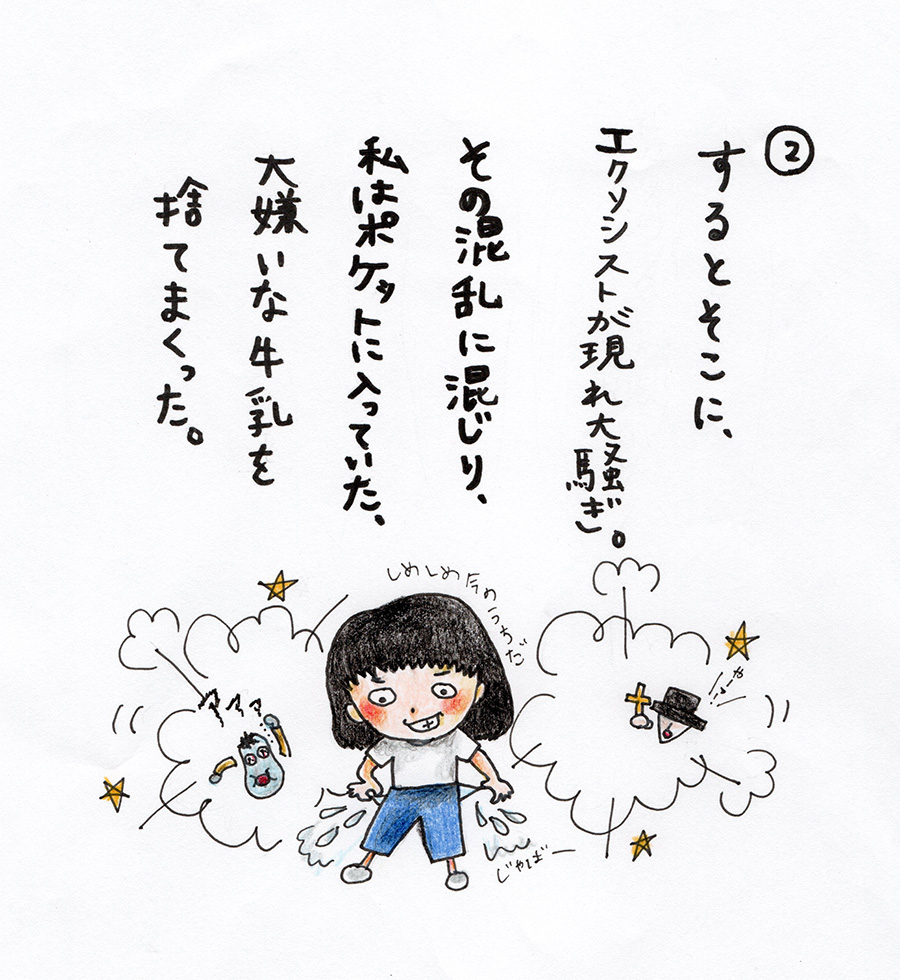 ②
するとそこに、
エクソシストが現れ大騒ぎ。
その混乱に混じり、
私はポケットに入っていた、
大嫌いな牛乳を
捨てまくった。
しめしめ今のうちだ
アアァ
じゃばー